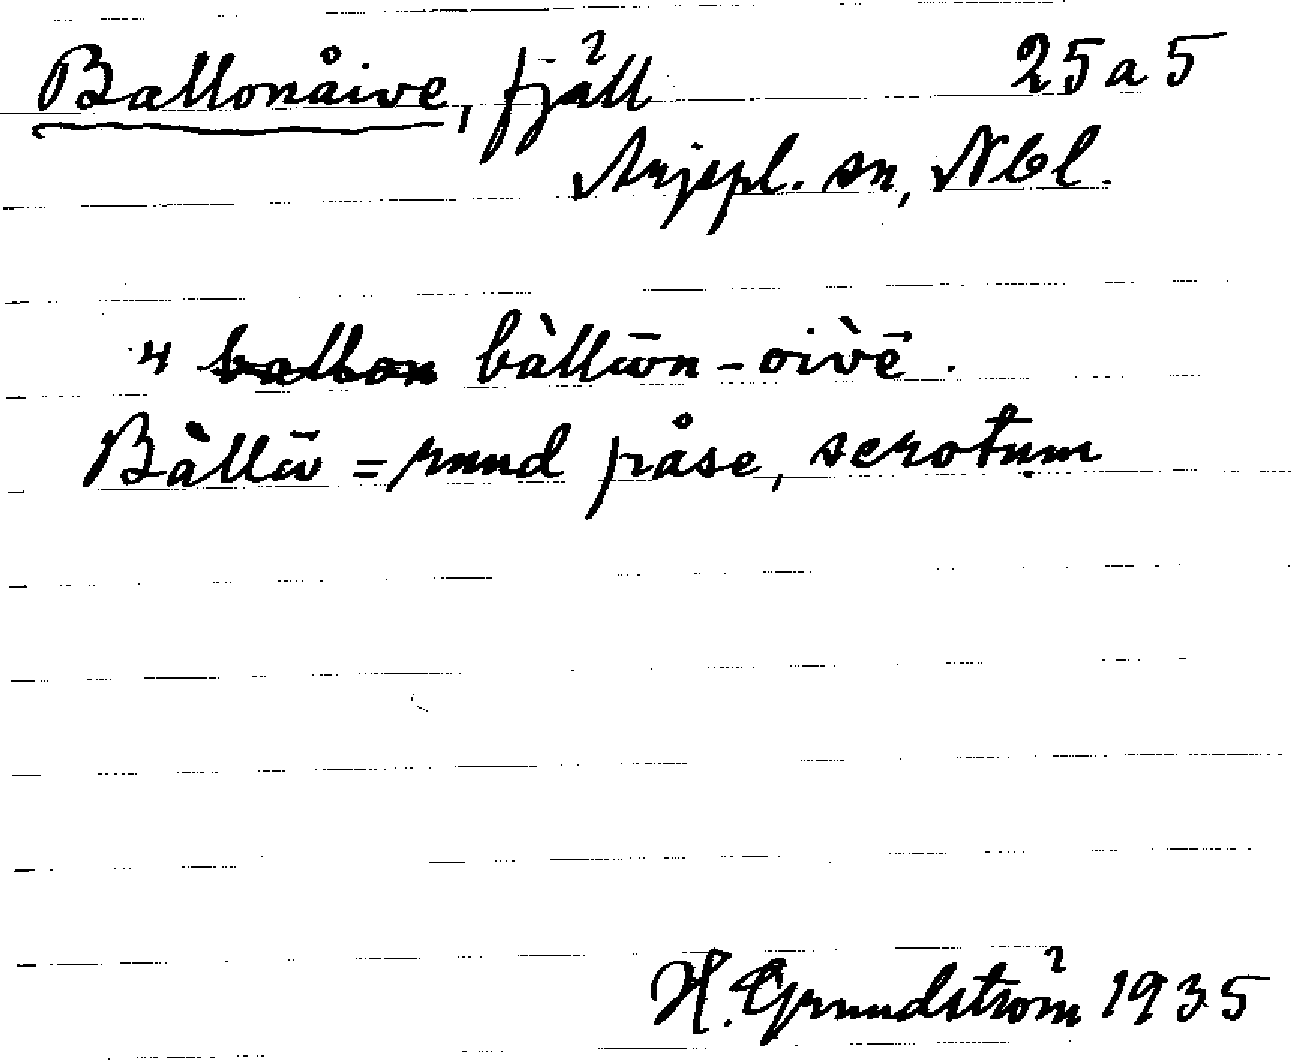 Ballonåive, fjäll 25 a 5
Arjepl. sn, Nbl.
4 ballon bàllōn-oivē.
Bàllō = rund påse, scrotum
H. Grundström 1935